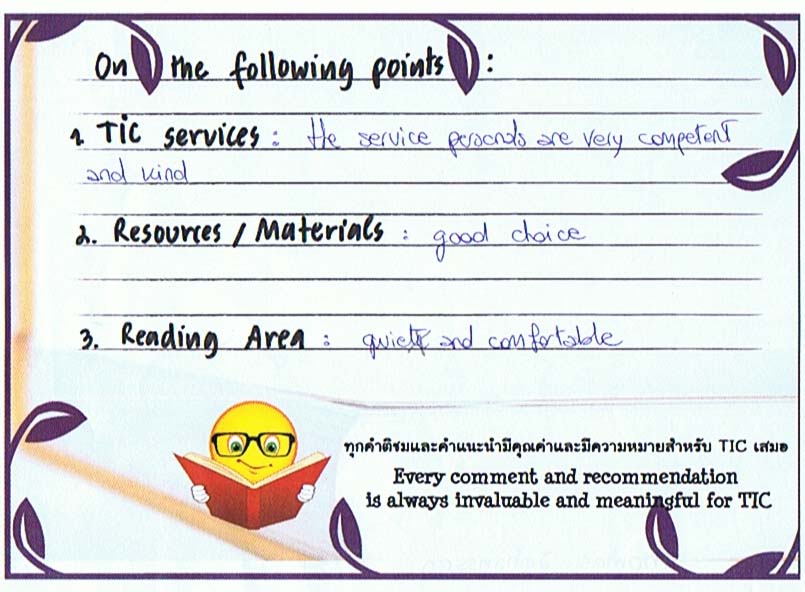 On the following points :
1. TIC services : the service personals are very competent
and kind
2. Resources / Materials : good choice
3. Reading Area : quiet and comfortable
ทุกคำติชมและคำแนะนำมีคุณค่าและมีความหมายสำหรับ TIC เสมอ
Every comment and recommendation
is always invaluable and meaningful for TIC